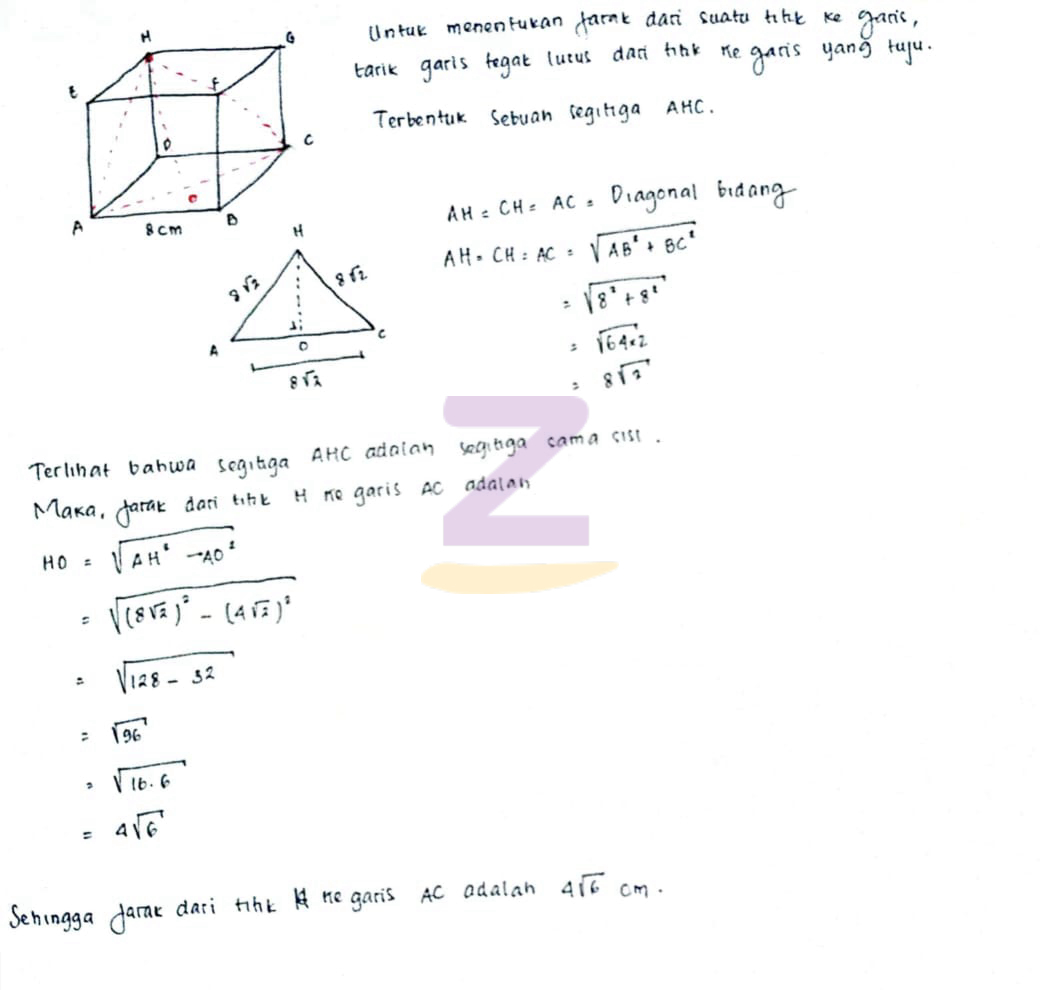 Untuk menentukan jarak dari suatu titik ke garis,
tarik garis tegak lurus dari titik ke garis yang tuju.
Terbentuk sebuah segitiga AHC.
H
G
E
F
D
C
A
B
8cm
O
AH = CH = AC = Diagonal bidang
AH = CH = AC = √(AB² + BC²)
= √(8² + 8²)
= √(64×2)
= 8√2
H
8√2
8√2
A
O
C
8√2
Z
Terlihat bahwa segitiga AHC adalah segitiga sama sisi.
Maka, jarak dari titik H ke garis AC adalah
HO = √(AH² - AO²)
= √((8√2)² - (4√2)²)
= √(128 - 32)
= √96
= √(16.6)
= 4√6
Sehingga jarak dari titik H ke garis AC adalah 4√6 cm.